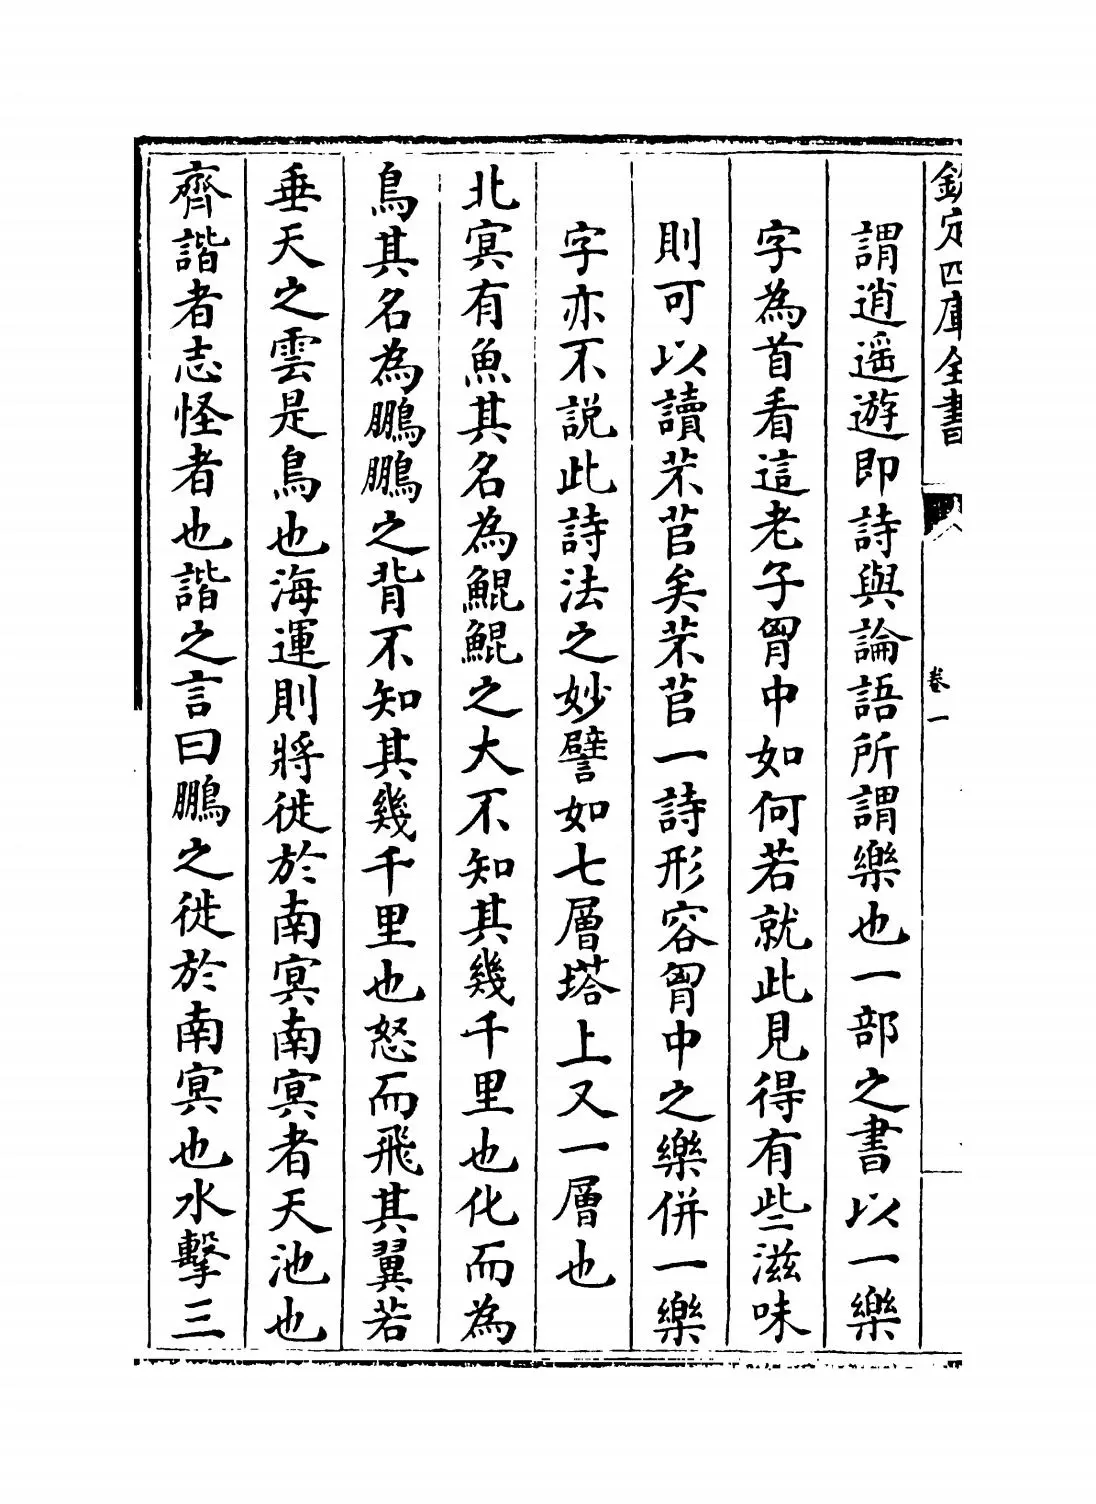 欽定四庫全書
卷一
謂逍遙遊即詩與論語所謂樂也一部之書以一樂
字為首看這老子胷中如何若就此見得有些滋味
則可以讀芣苢矣芣苢一詩形容胷中之樂併一樂
字亦不說此詩法之妙譬如七層塔上又一層也
北冥有魚其名為鯤鯤之大不知其幾千里也化而為
鳥其名為鵬鵬之背不知其幾千里也怒而飛其翼若
垂天之雲是鳥也海運則將徙於南冥南冥者天池也
齊諧者志怪者也諧之言曰鵬之徙於南冥也水擊三